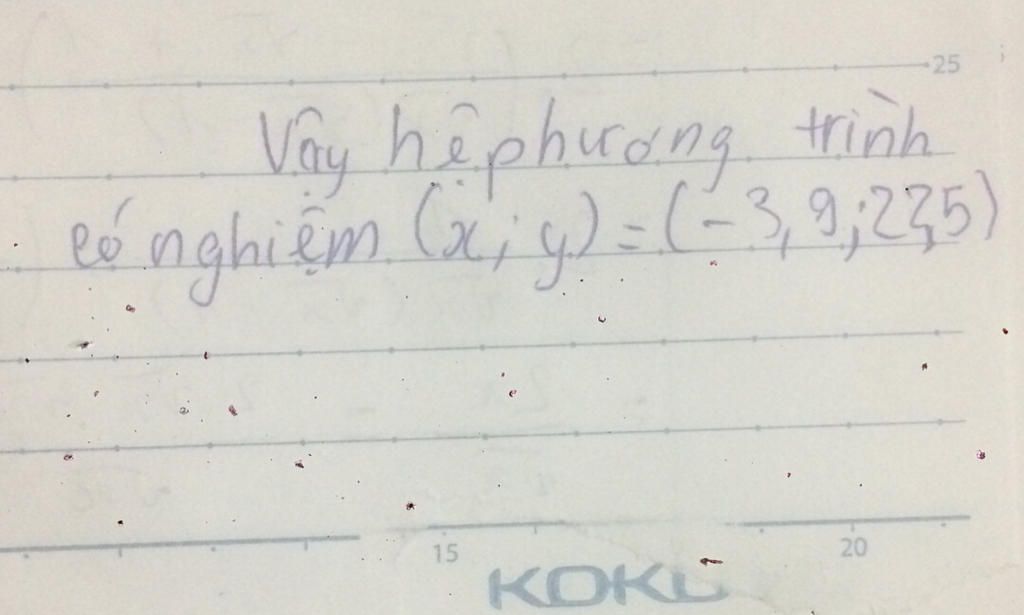 25
Vậy hệ phương trình
có nghiệm (x; y) = (-3,9; 27,5)
15 20
KOKU